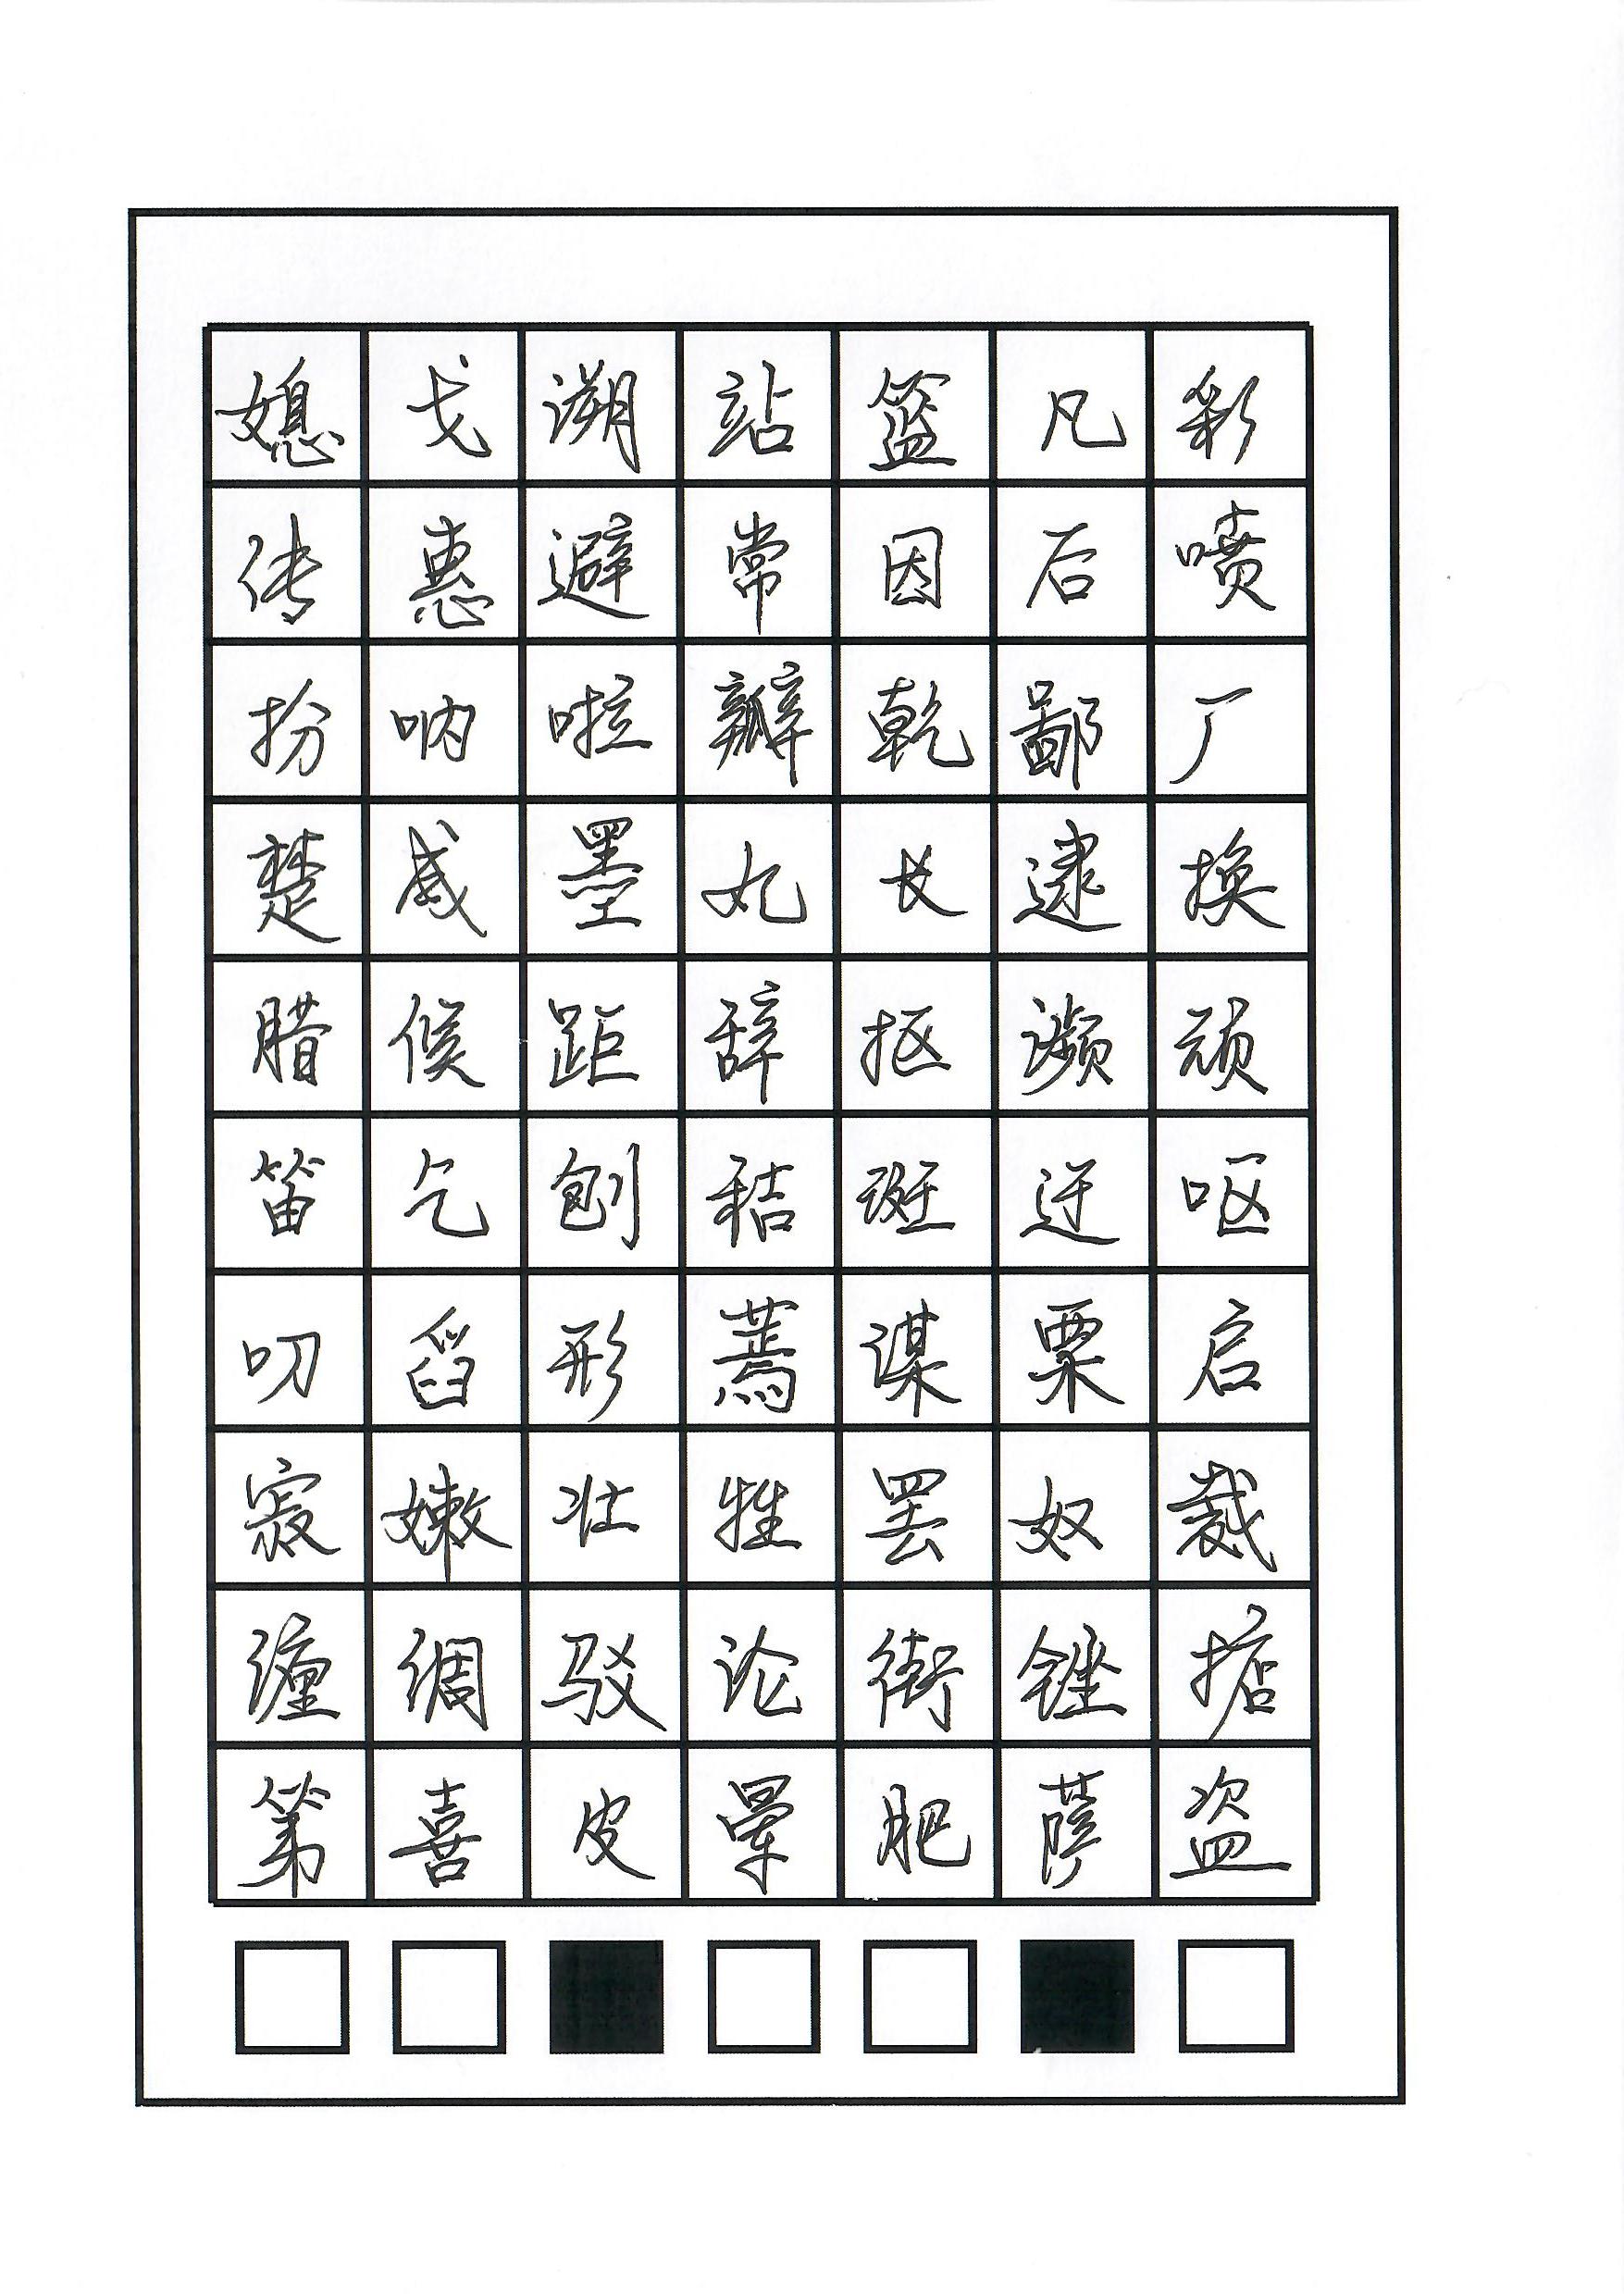 媳戈溯站篮凡彩
传惠避常因后喷
扮呐啦瓣乾鄙厂
楚咸墨妃长逮换
腊候距辞抠濒顽
笛乞刨秸斑迂呕
叨舀形蔫谋栗启
寂嫩壮牲罢奴裁
缠绸驳论衔锉掂
第喜皮晕肥萨盗